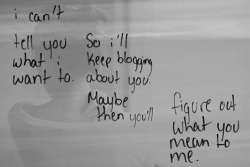 i can't
tell you
what i
want to.
So i'll
keep blogging
about you.
Maybe
then you'll
figure out
what you
mean to
me.